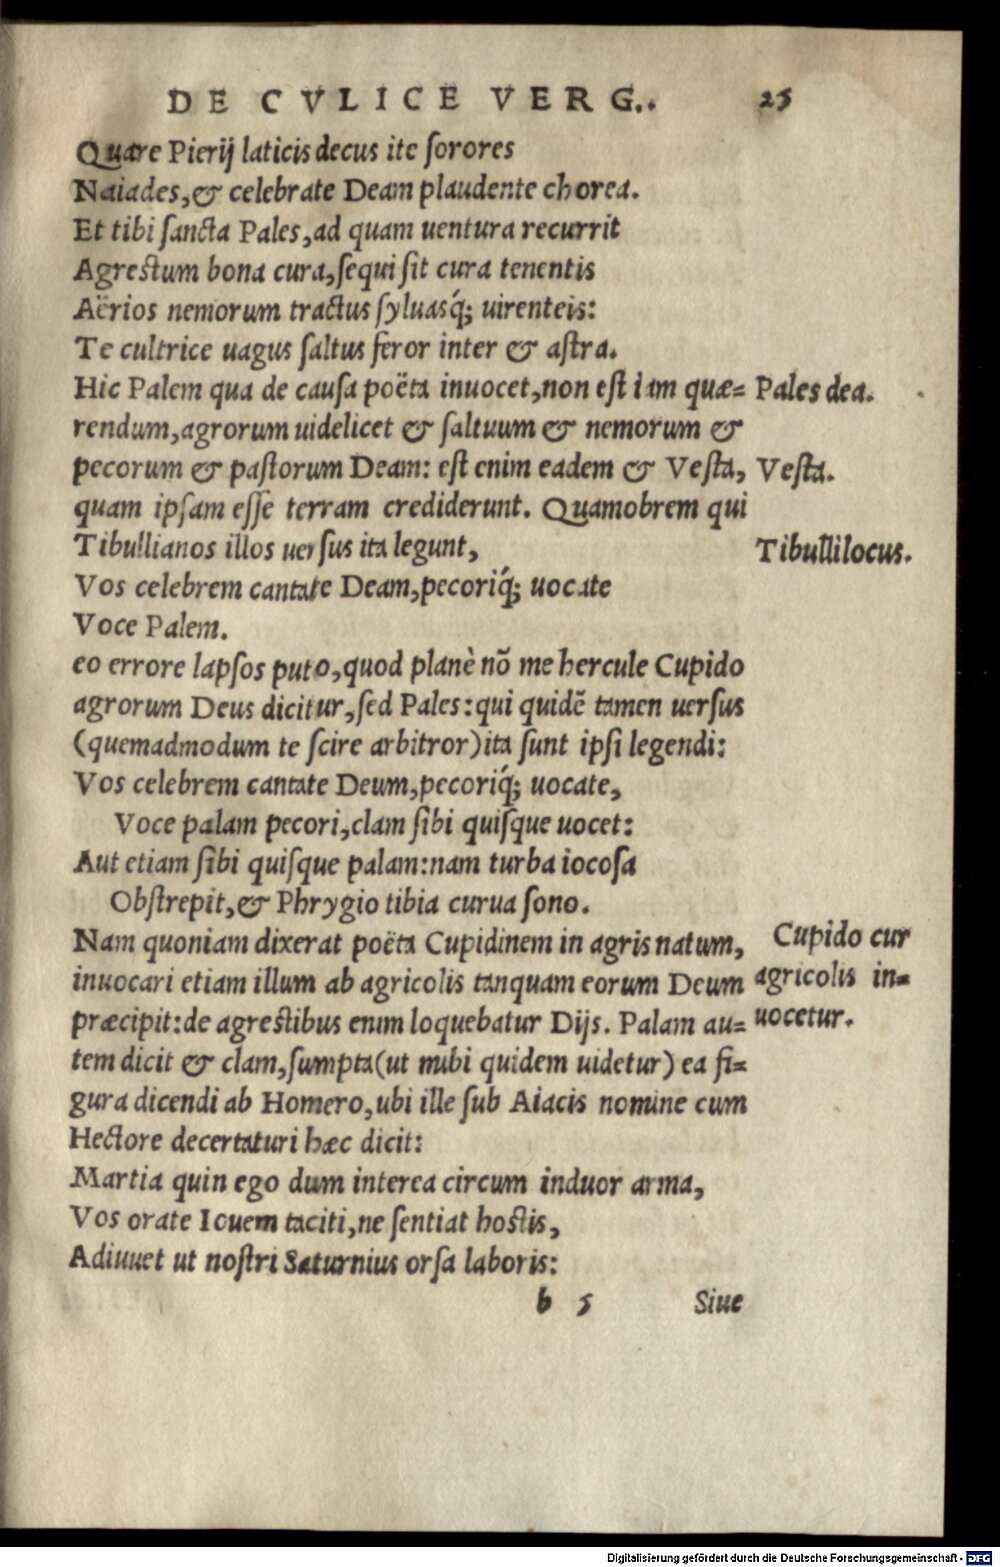 DE CVLICE VERG.. 25
Quare Pierij laticis decus ite ſorores
Naiades,& celebrate Deam plaudente chorea.
Et tibi ſancta Pales,ad quam uentura recurrit
Agreſtum bona cura,ſequi ſit cura tenentis
Aërios nemorum tractus ſyluasq́; uirenteis:
Te cultrice uagus ſaltus feror inter & aſtra.
Hic Palem qua de cauſa poëta inuocet,non eſt iam quæ= Pales dea.
rendum,agrorum uidelicet & ſaltuum & nemorum &
pecorum & paſtorum Deam: eſt enim eadem & Veſta, Veſta.
quam ipſam eſſe terram crediderunt. Quamobrem qui
Tibullianos illos uerſus ita legunt, Tibulli locus.
Vos celebrem cantate Deam,pecoriq́; uocate
Voce Palem.
eo errore lapſos puto,quod planè nõ me hercule Cupido
agrorum Deus dicitur,ſed Pales:qui quidẽ tamen uerſus
(quemadmodum te ſcire arbitror)ita ſunt ipſi legendi:
Vos celebrem cantate Deum,pecoriq́; uocate,
Voce palam pecori,clam ſibi quiſque uocet:
Aut etiam ſibi quiſque palam:nam turba iocoſa
Obſtrepit,& Phrygio tibia curua ſono.
Nam quoniam dixerat poëta Cupidinem in agris natum, Cupido cur
inuocari etiam illum ab agricolis tanquam eorum Deum agricolis in=
præcipit:de agreſtibus enim loquebatur Dijs. Palam au= uocetur.
tem dicit & clam,ſumpta(ut mihi quidem uidetur) ea fi=
gura dicendi ab Homero,ubi ille ſub Aiacis nomine cum
Hectore decertaturi hæc dicit:
Martia quin ego dum interea circum induor arma,
Vos orate Iouem taciti,ne ſentiat hoſtis,
Adiuuet ut noſtri Saturnius orſa laboris:
b 5 Siue
Digitalisierung gefördert durch die Deutsche Forschungsgemeinschaft - DFG